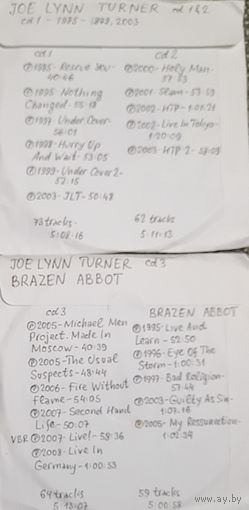 JOE LYNN TURNER cd 1&2
cd 1 - 1985 - 1999, 2003
cd1
℗1985- Rescue You-
40:46
℗1995- Nothing
Changed- 55:18
℗1997 Under Cover-
56:01
℗1998- Hurry Up
And Wait- 53:05
℗1999- Under Cover 2-
52:15
℗2003- JLT- 50:48
73 tracks
5:08:16
cd 2
℗2000- Holy Man-
57:53
℗2001- Slam- 53:59
℗2002- HTP- 1:01:21
℗2002- Live In Tokyo-
1:20:09
℗2003- HTP 2-
62 tracks
5:11:13
JOE LYNN TURNER cd 3
BRAZEN ABBOT
cd3
℗2005- Michael Men
Project. Made In
Moscow- 40:39
℗2005- The Usual
Suspects- 48:44
℗2006- Fire Without
Flame- 54:05
℗2007- Second Hand
Life- 50:07
VBR ℗2007- Live!- 58:36
℗2008- Live In
Germany- 1:00:53
64 tracks
5:13:07
BRAZEN ABBOT
℗1995- Live And
Learn- 52:50
℗1996- Eye Of The
Storm- 1:00:31
℗1997- Bad Religion-
57:44
℗2003- Guilty As Sin-
1:07:16
℗2005- My Ressurection-
1:02:34
59 tracks
5:00:58
ay.by